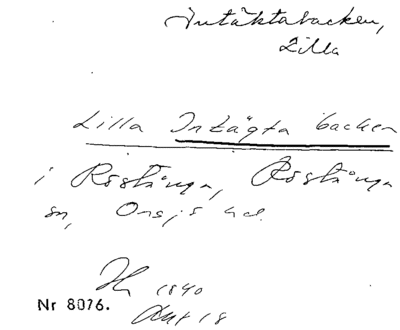 Intäktabacken,
Lilla
Lilla Intägta backen
i Röstånga, Röstånga
sn, Onsjö hd.
1840
Nr 8076.
Akt 18